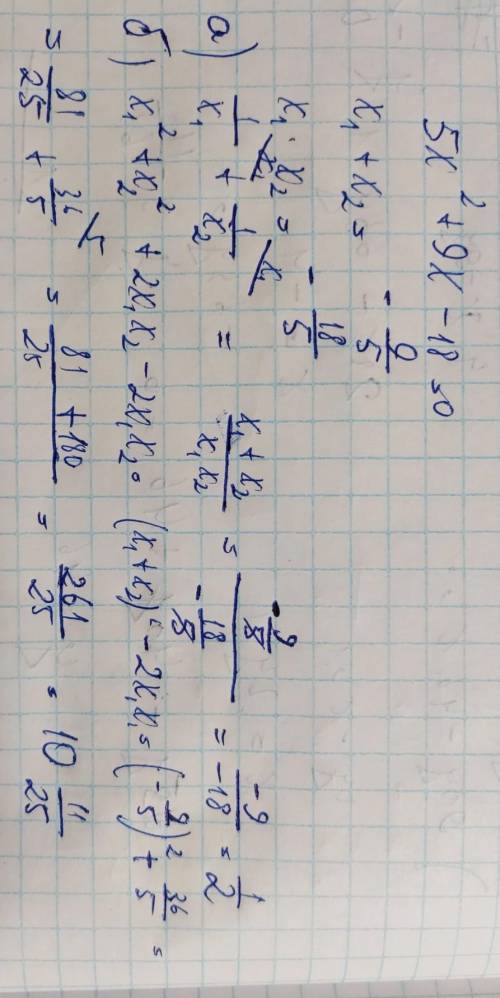 5x² + 9x - 18 = 0
x₁ + x₂ = - 9/5
x₁ · x₂ = - 18/5
а) 1/x₁ + 1/x₂ = (x₁ + x₂)/(x₁x₂) = (- 9/5)/(- 18/5) = -9/-18 = 1/2
б) x₁² + x₂² + 2x₁x₂ - 2x₁x₂ = (x₁ + x₂)² - 2x₁x₂ = (- 9/5)² + 36/5 =
= 81/25 + 36/5 ⁵ = (81 + 180)/25 = 261/25 = 10 11/25